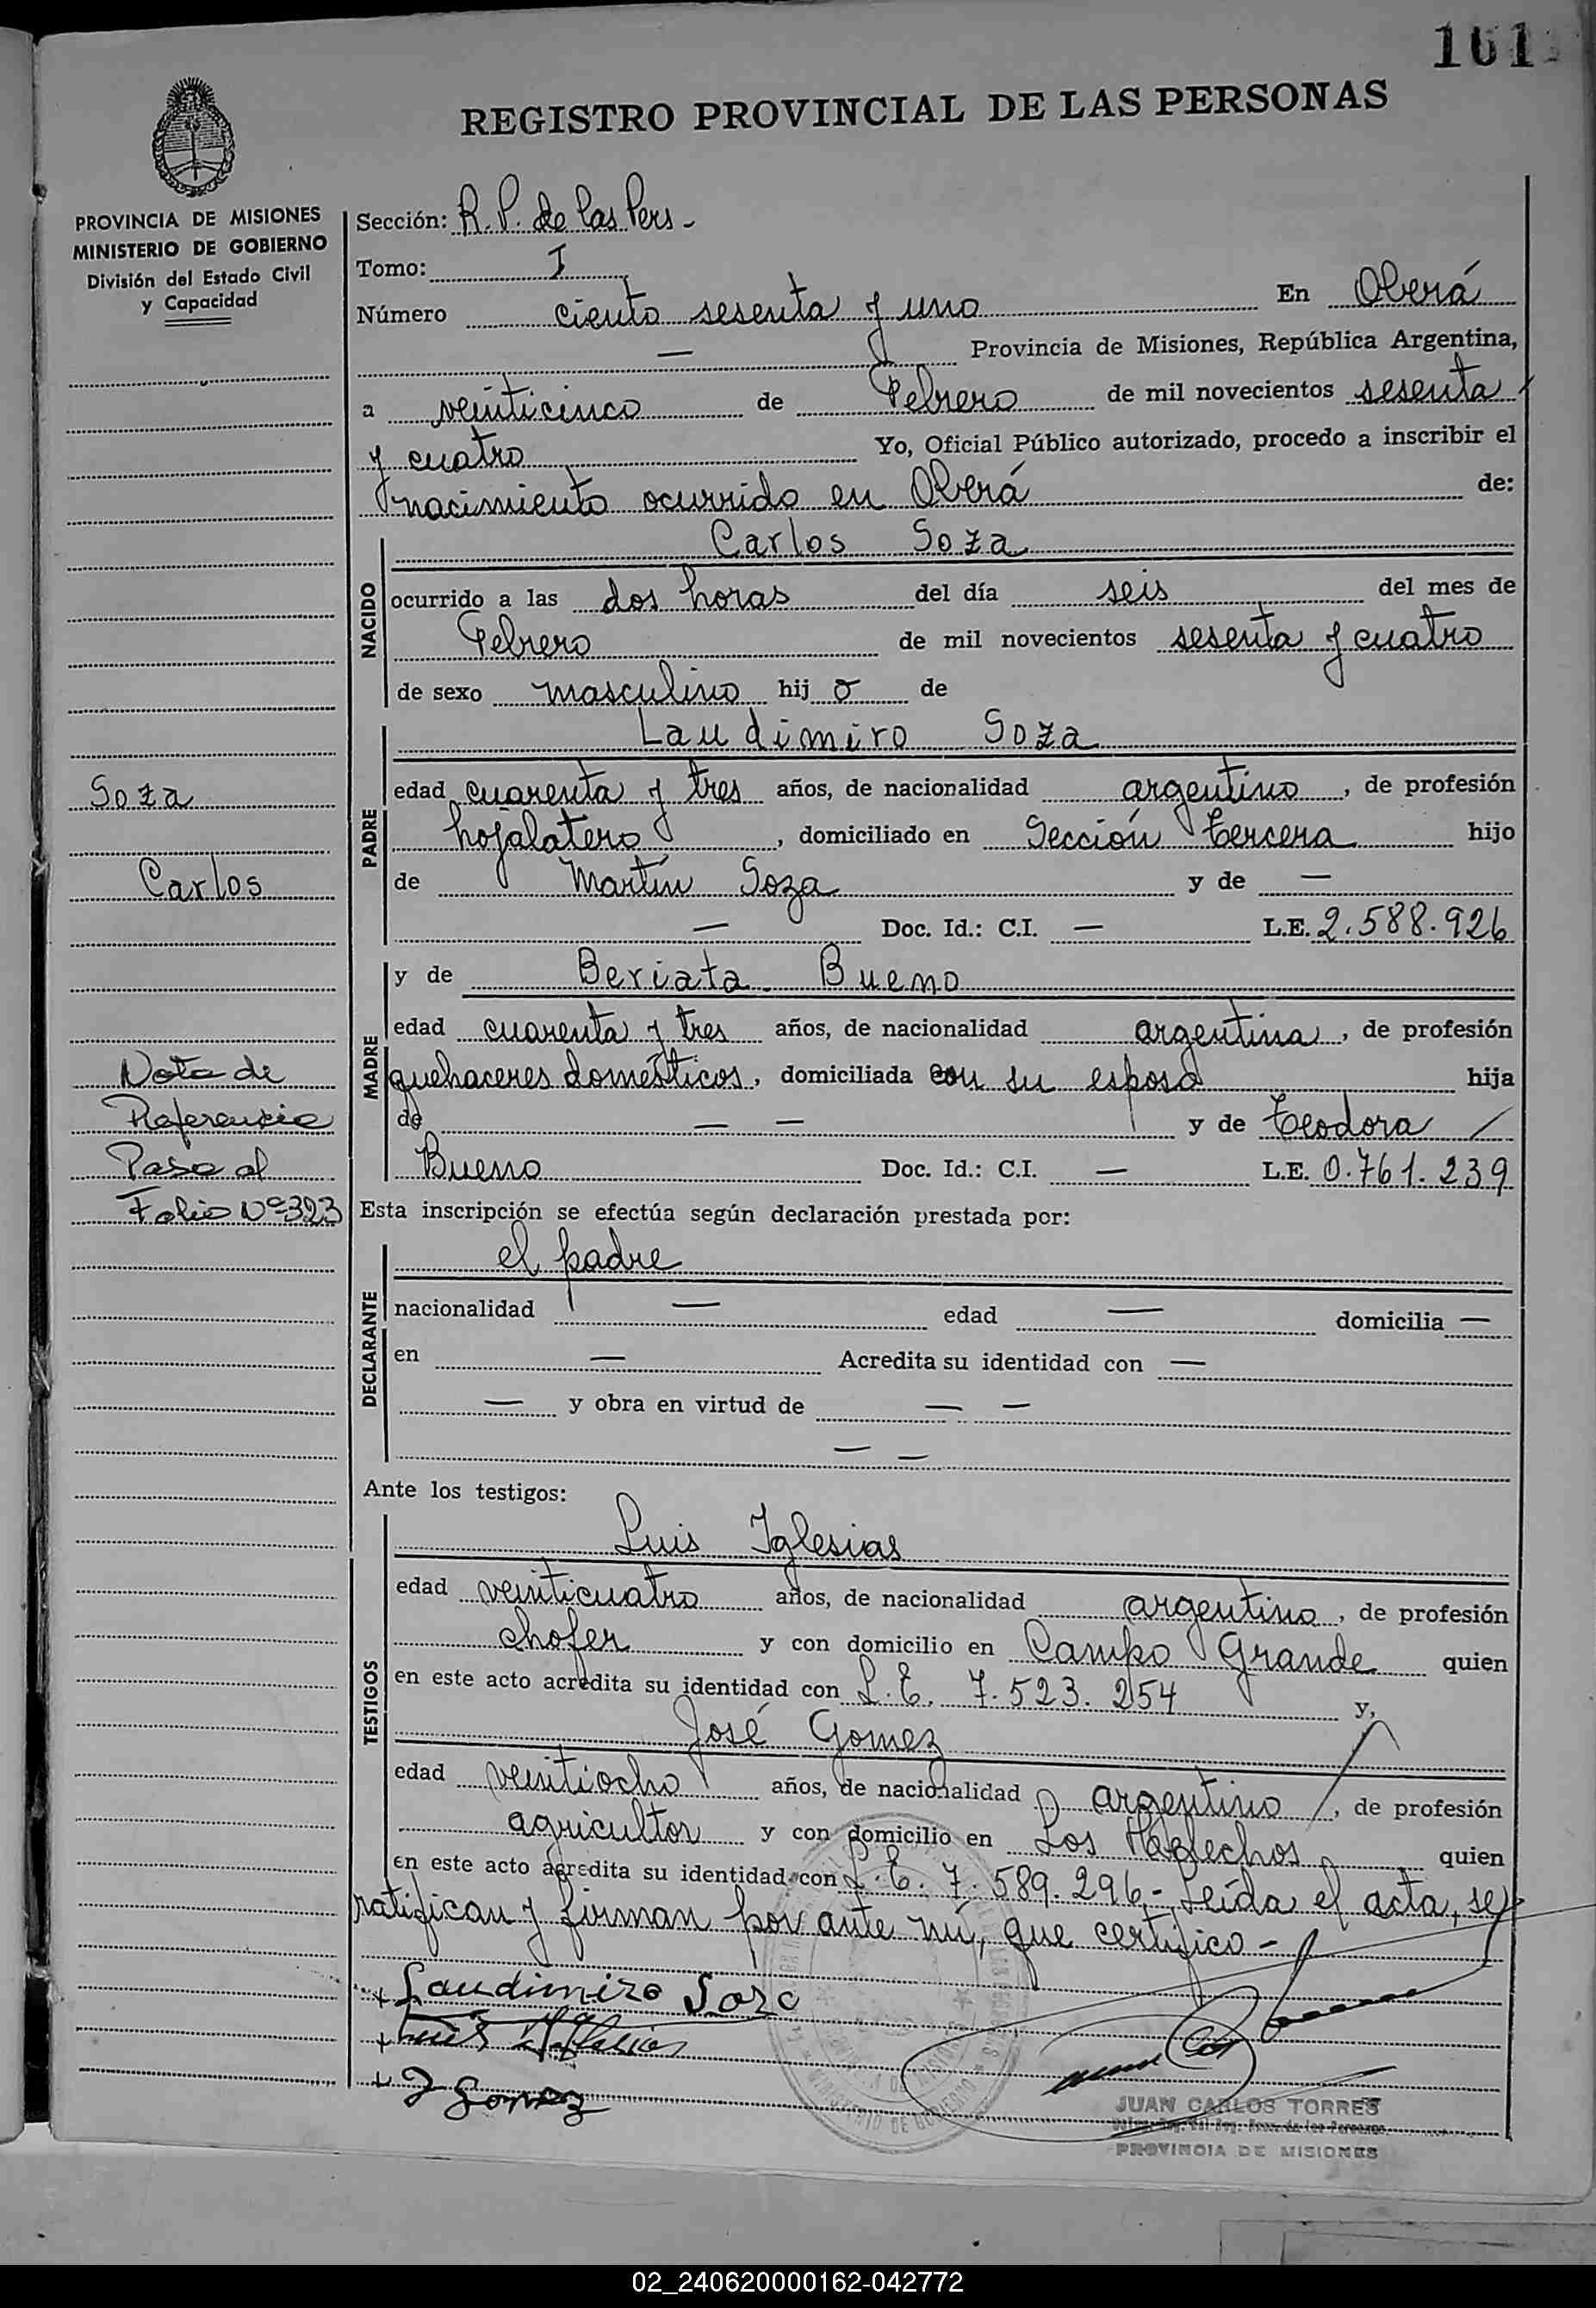 161
REGISTRO PROVINCIAL DE LAS PERSONAS
PROVINCIA DE MISIONES
MINISTERIO DE GOBIERNO
División del Estado Civil
y Capacidad
Sección: R. P. de las Pers -
Tomo: I
Número ciento sesenta y uno En Oberá
— Provincia de Misiones, República Argentina,
a veinticinco de Febrero de mil novecientos sesenta
y cuatro Yo, Oficial Público autorizado, procedo a inscribir el
nacimiento ocurrido en Oberá de:
Carlos Soza
NACIDO
ocurrido a las dos horas del día seis del mes de
Febrero de mil novecientos sesenta y cuatro
de sexo masculino hij o de
Laudimiro Soza
PADRE
edad cuarenta y tres años, de nacionalidad argentino, de profesión
hojalatero, domiciliado en Sección tercera hijo
de Martín Soza y de —
— Doc. Id.: C.I. — L.E. 2.588.926
MADRE
y de Beriata Bueno
edad cuarenta y tres años, de nacionalidad argentina, de profesión
quehaceres domésticos, domiciliada con su esposo hija
de — — y de Teodora /
Bueno Doc. Id.: C.I. — L.E. 0.761.239
Soza
Carlos
Nota de
Referencia
Pasa al
Folio Nº 323
Esta inscripción se efectúa según declaración prestada por:
DECLARANTE
el padre
nacionalidad — edad — domicilia —
en — Acredita su identidad con —
— y obra en virtud de — —
— —
Ante los testigos:
TESTIGOS
Luis Iglesias
edad veinticuatro años, de nacionalidad argentino, de profesión
chofer y con domicilio en Campo Grande quien
en este acto acredita su identidad con L.E. 7.523.254 y,
José Gomez
edad veintiocho años, de nacionalidad argentino, de profesión
agricultor y con domicilio en Los Helechos quien
en este acto acredita su identidad con L.E. 7.589.296.- Leída el acta, se
ratifican y firman por ante mí, que certifico -
+ Laudimiro Soza
+ Luis Iglesias
+ J Gomez
MINISTERIO DE GOBIERNO
JUAN CARLOS TORRES
PROVINCIA DE MISIONES
02_240620000162-042772